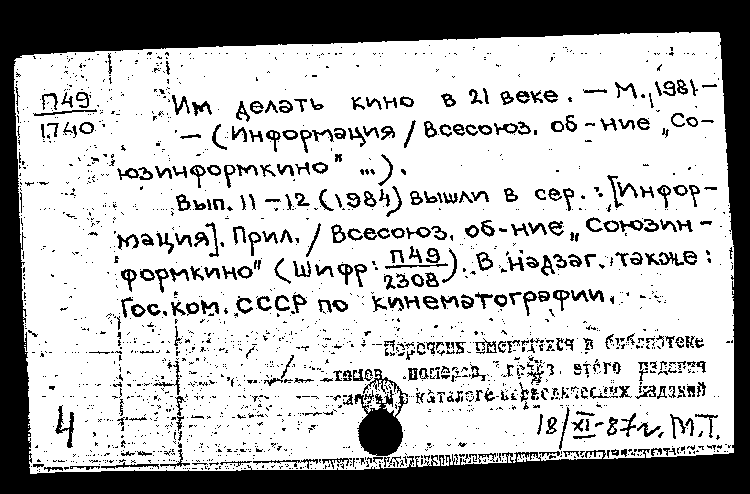 П49
1740
Им делать кино в 21 веке. — М., 1981—
— (Информация / Всесоюз. об-ние „Со-
юзинформкино" ...).
Вып. 11-12 (1984) вышли в сер.: [Инфор-
мация]. Прил. / Всесоюз. об-ние „Союзин-
формкино" (Шифр: П49
2308). В надзаг. также:
Гос. ком. СССР по кинематографии.
Перечень имеющихся в библиотеке
томов, номеров, этого издания
в каталоге периодических изданий
4
18/XI-87г. М.Т.